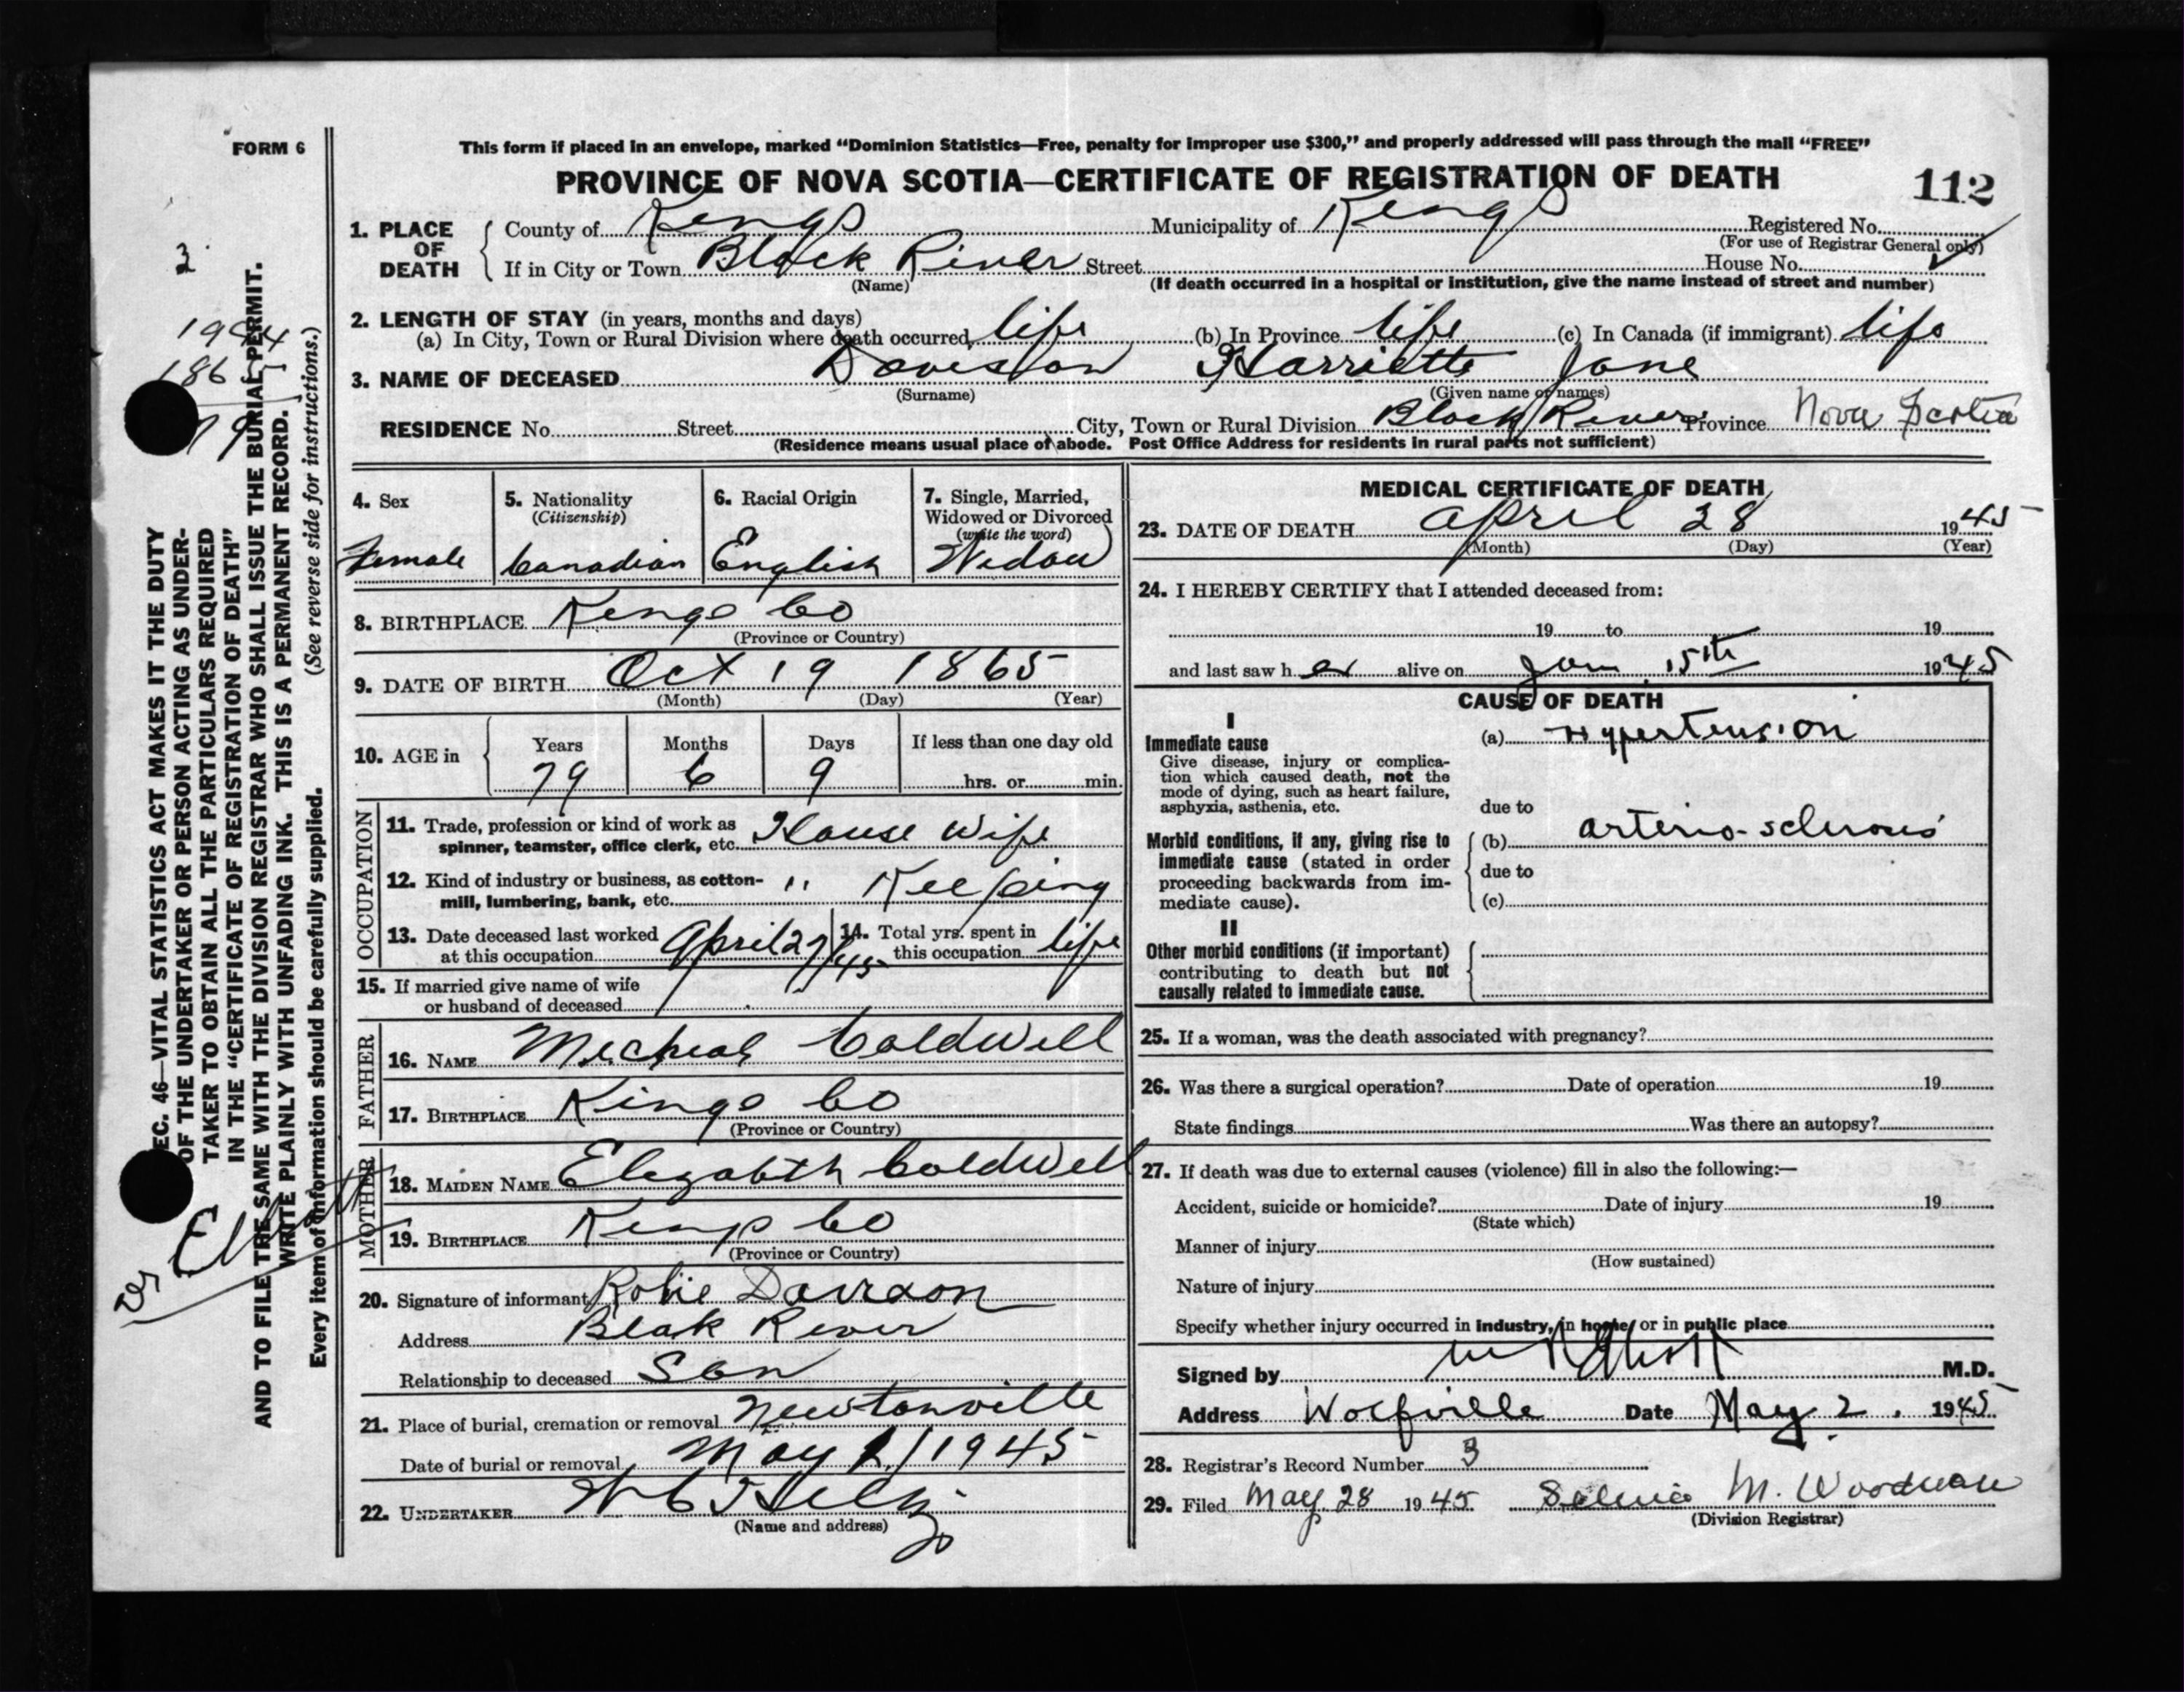 FORM 6
This form if placed in an envelope, marked “Dominion Statistics—Free, penalty for improper use $300,” and properly addressed will pass through the mail “FREE”
PROVINCE OF NOVA SCOTIA—CERTIFICATE OF REGISTRATION OF DEATH
112
1. PLACE OF DEATH
County of Kings Municipality of Kings Registered No.
(For use of Registrar General only)
If in City or Town Black River Street House No.
(Name) (If death occurred in a hospital or institution, give the name instead of street and number)
2. LENGTH OF STAY (in years, months and days)
(a) In City, Town or Rural Division where death occurred life (b) In Province life (c) In Canada (if immigrant) life
3. NAME OF DECEASED Davison Harriette Jane
(Surname) (Given name or names)
RESIDENCE No. Street City, Town or Rural Division Black River Province Nova Scotia
(Residence means usual place of abode. Post Office Address for residents in rural parts not sufficient)
4. Sex
Female
5. Nationality
(Citizenship)
Canadian
6. Racial Origin
English
7. Single, Married,
Widowed or Divorced
(write the word)
Widow
8. BIRTHPLACE Kings Co
(Province or Country)
9. DATE OF BIRTH Oct 19 1865
(Month) (Day) (Year)
10. AGE in
Years Months Days If less than one day old
79 6 9 hrs. or min.
OCCUPATION
11. Trade, profession or kind of work as
spinner, teamster, office clerk, etc. House Wife
12. Kind of industry or business, as cotton-
mill, lumbering, bank, etc. " Keeping
13. Date deceased last worked
at this occupation April 27/45
14. Total yrs. spent in
this occupation life
15. If married give name of wife
or husband of deceased
FATHER
16. NAME Micheal Coldwell
17. BIRTHPLACE Kings Co
(Province or Country)
MOTHER
18. MAIDEN NAME Elezabth Coldwell
19. BIRTHPLACE Kings Co
(Province or Country)
20. Signature of informant Robie Davison
Address Blak River
Relationship to deceased Son
21. Place of burial, cremation or removal Newtonville
Date of burial or removal May 1/1945
22. UNDERTAKER
(Name and address)
MEDICAL CERTIFICATE OF DEATH
23. DATE OF DEATH April 28 1945
(Month) (Day) (Year)
24. I HEREBY CERTIFY that I attended deceased from:
19 to 19
and last saw h er alive on Jan 15th 1945
CAUSE OF DEATH
I
Immediate cause
Give disease, injury or complica-
tion which caused death, not the
mode of dying, such as heart failure,
asphyxia, asthenia, etc.
(a) Hypertension
due to
Morbid conditions, if any, giving rise to
immediate cause (stated in order
proceeding backwards from im-
mediate cause).
(b) arterio-sclerosis
due to
(c)
II
Other morbid conditions (if important)
contributing to death but not
causally related to immediate cause.
25. If a woman, was the death associated with pregnancy?
26. Was there a surgical operation? Date of operation 19
State findings Was there an autopsy?
27. If death was due to external causes (violence) fill in also the following:—
Accident, suicide or homicide? Date of injury 19
(State which)
Manner of injury
(How sustained)
Nature of injury
Specify whether injury occurred in industry, in home, or in public place
Signed by M.D.
Address Wolfville Date May 2. 1945
28. Registrar's Record Number 3
29. Filed May 28 1945 M. Woodman
(Division Registrar)
3
1944
1865
79
EC. 46—VITAL STATISTICS ACT MAKES IT THE DUTY
OF THE UNDERTAKER OR PERSON ACTING AS UNDER-
TAKER TO OBTAIN ALL THE PARTICULARS REQUIRED
IN THE “CERTIFICATE OF REGISTRATION OF DEATH”
AND TO FILE THE SAME WITH THE DIVISION REGISTRAR WHO SHALL ISSUE THE BURIAL PERMIT.
WRITE PLAINLY WITH UNFADING INK. THIS IS A PERMANENT RECORD.
Every item of information should be carefully supplied. (See reverse side for instructions.)
Dr Elliott